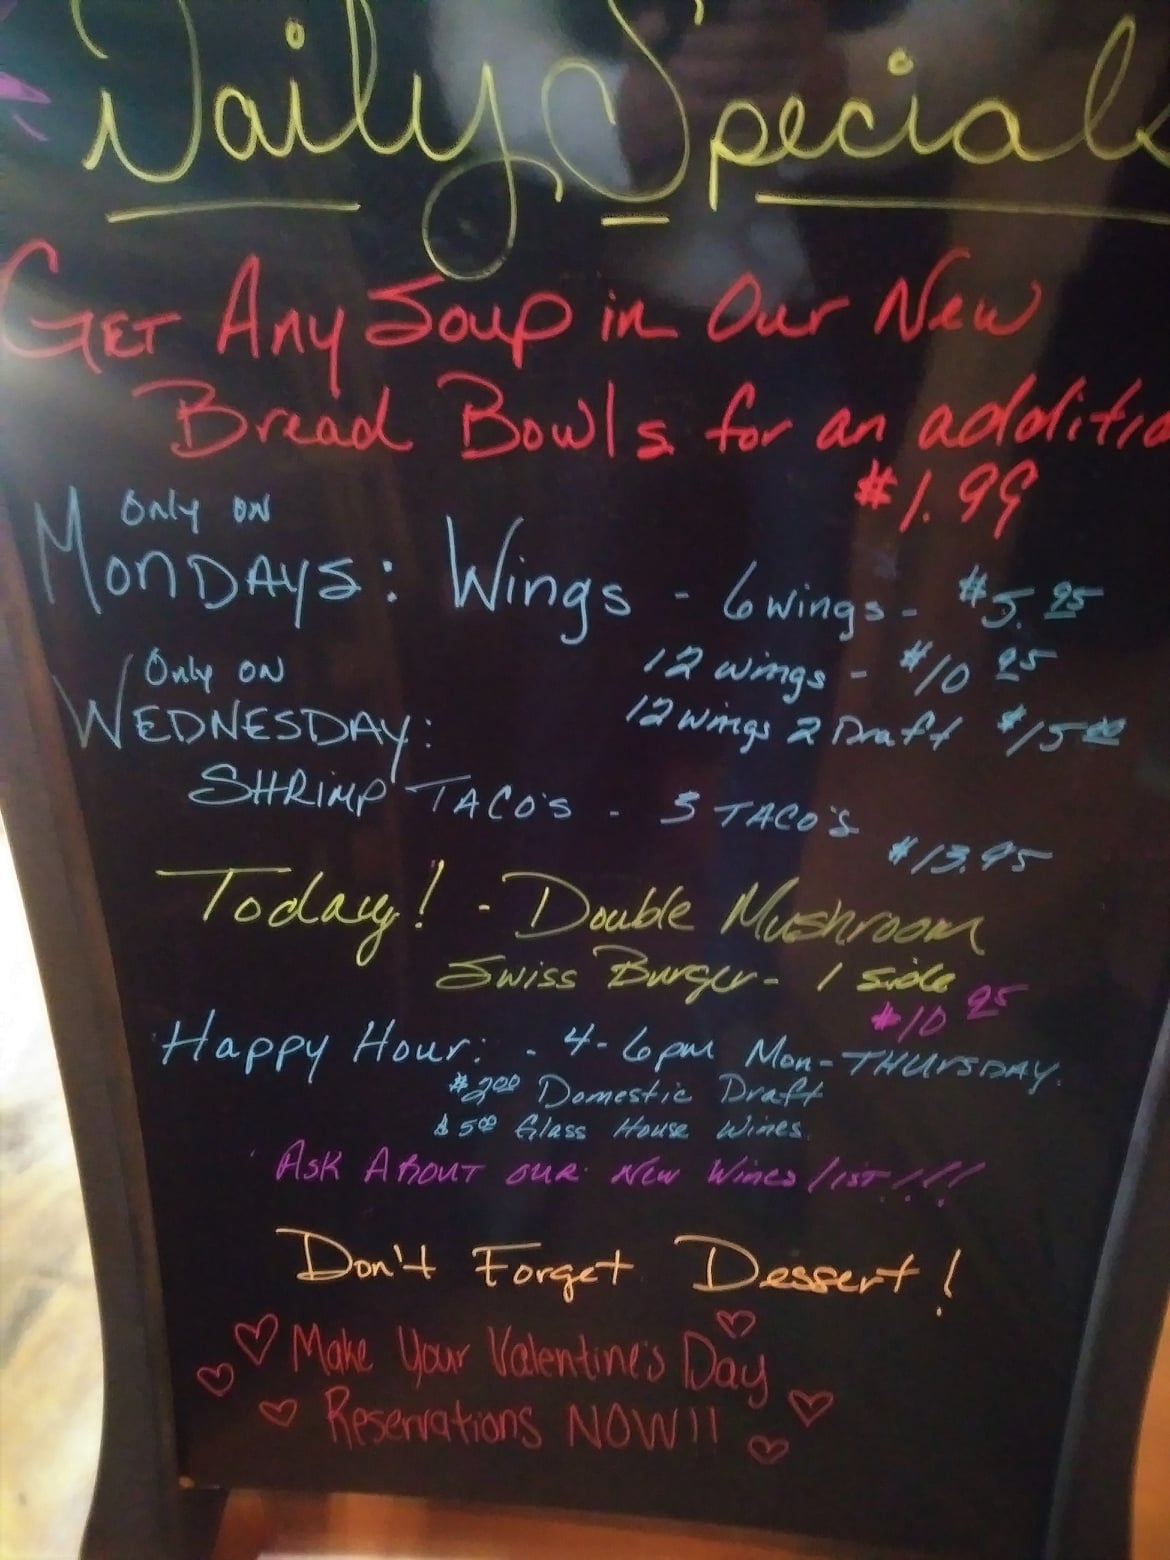 Daily Specials
GET Any Soup in Our New
Bread Bowls for an additio
$1.99
Only on
MONDAYS: Wings - 6 wings - $5.95
12 wings - $10 95
12 wings 2 Draft $15 00
Only on
WEDNESDAY:
SHRIMP TACO'S - 3 TACO'S
$13.95
Today! - Double Mushroom
Swiss Burger - 1 side
$10 95
Happy Hour: - 4-6pm Mon-THURSDAY.
$2 00 Domestic Draft
$5 00 Glass House Wines
ASK ABOUT OUR New Wines list!!!
Don't Forget Dessert!
Make Your Valentine's Day
Reservations NOW!!